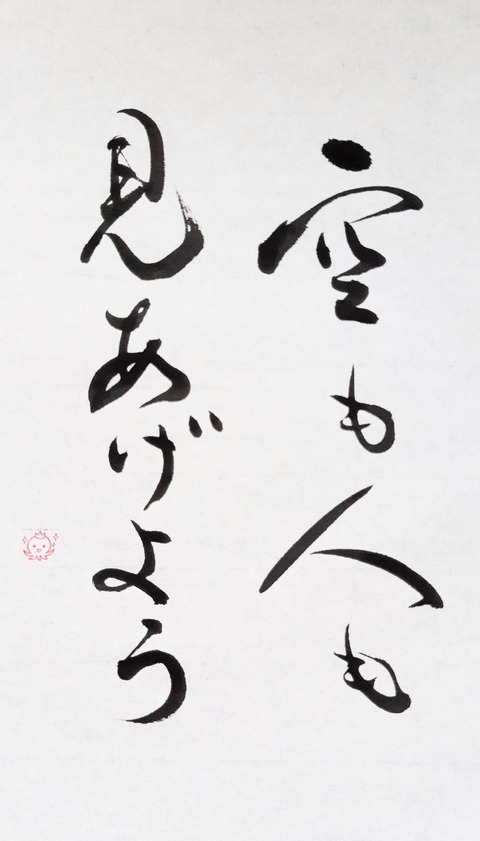 空も人も
見あげよう